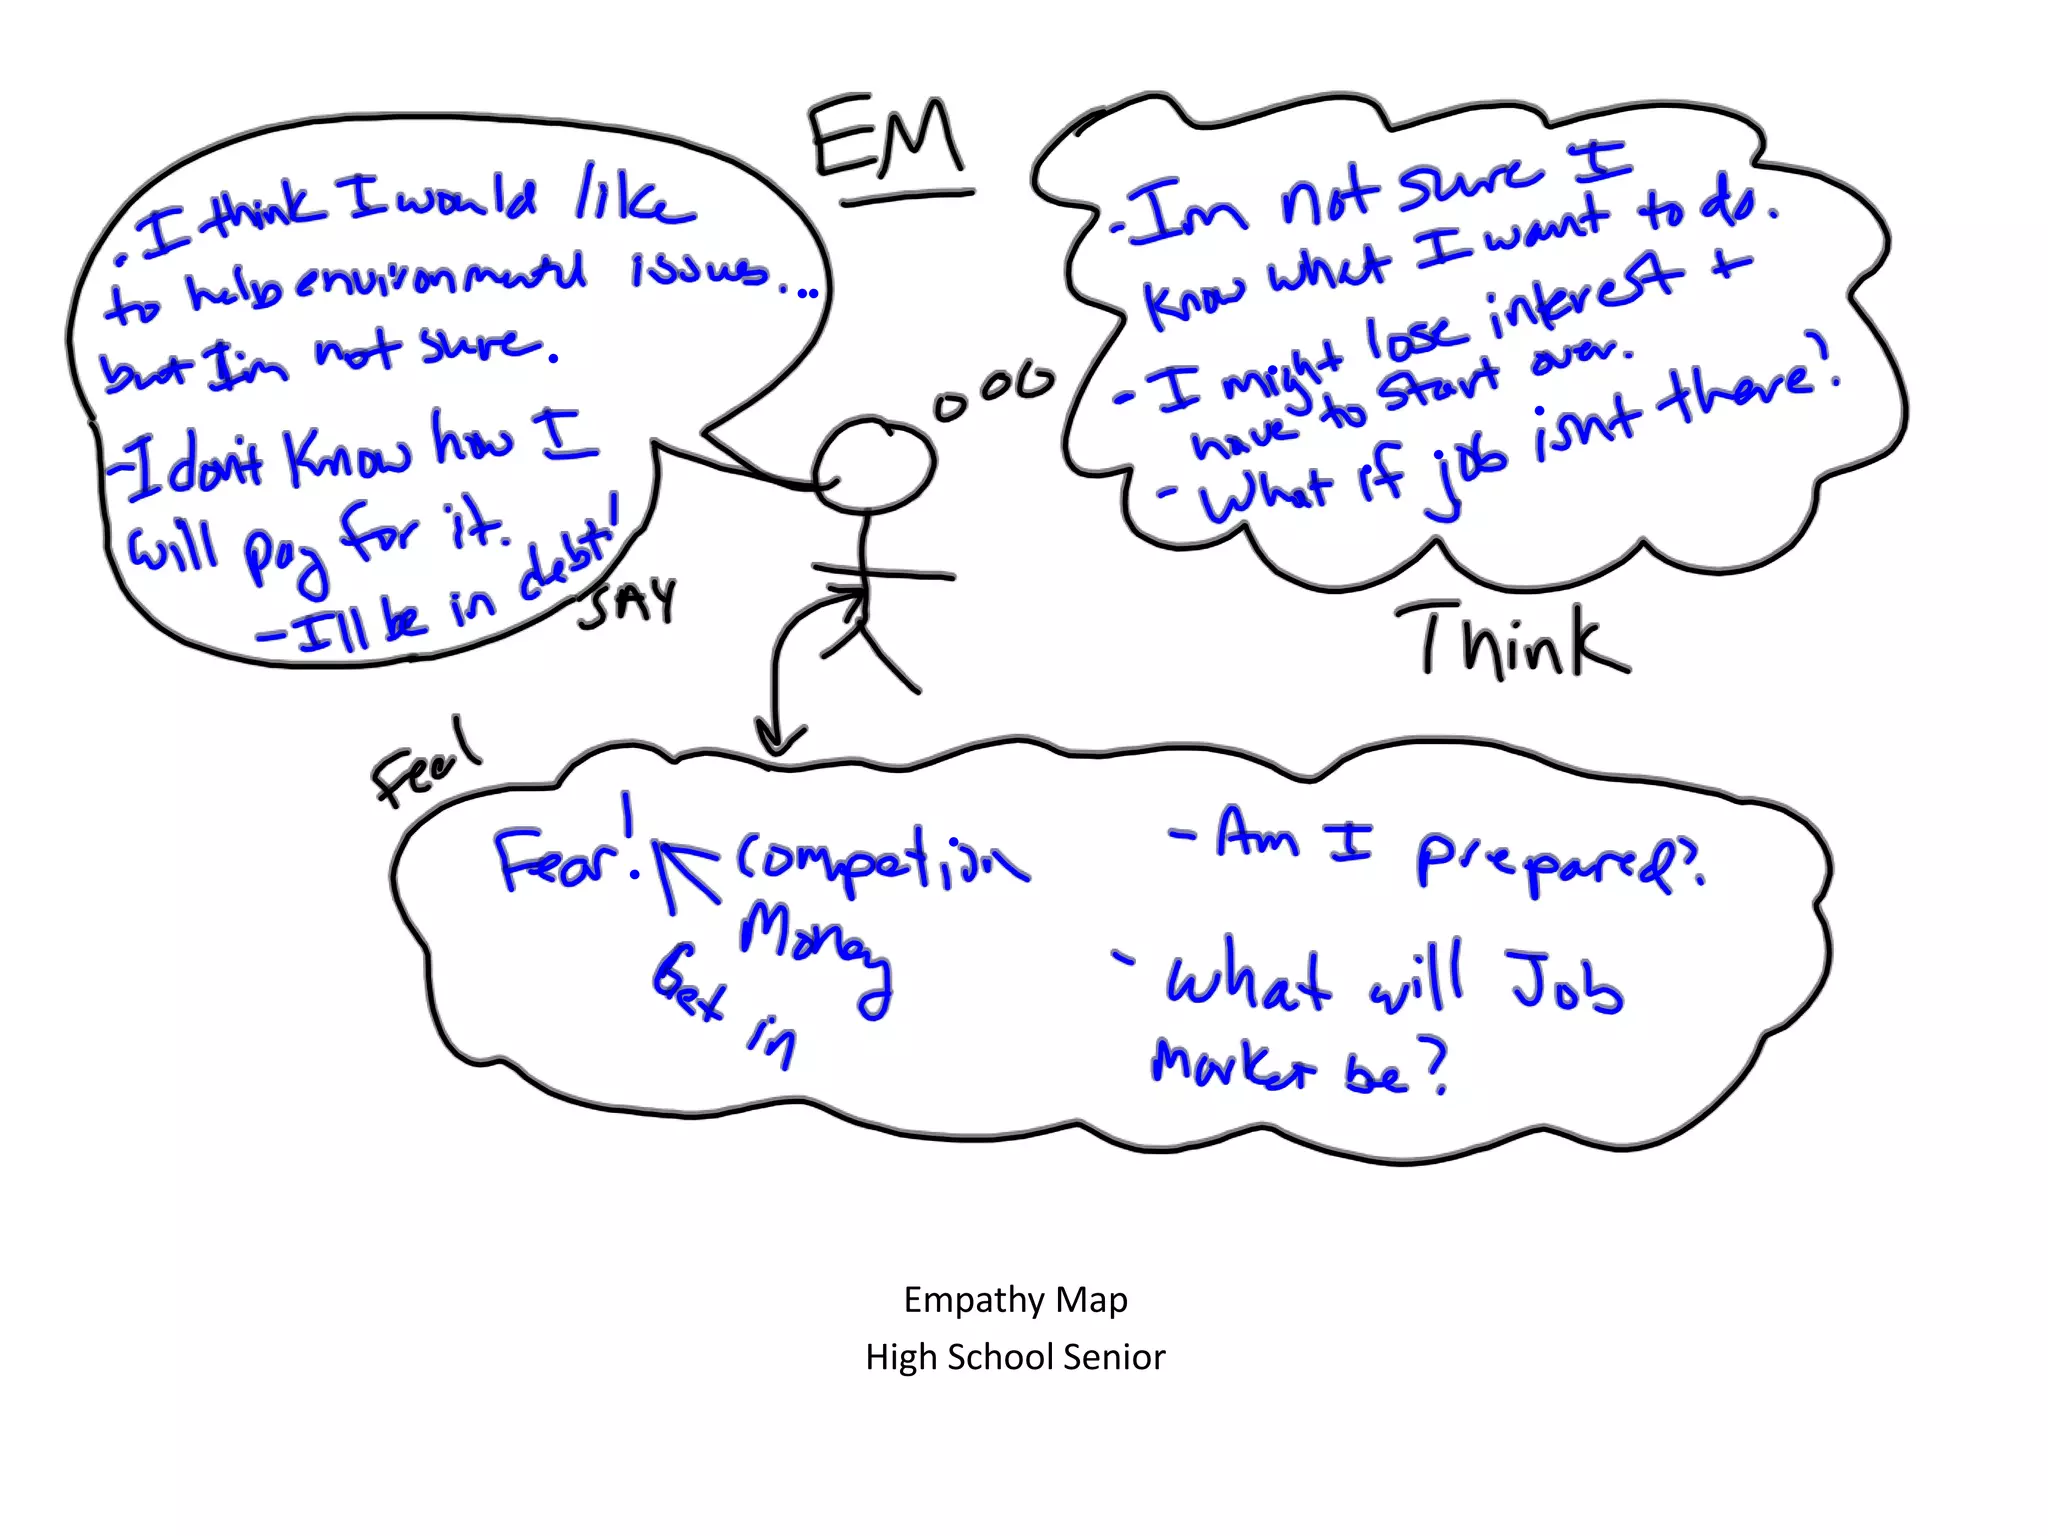 EM
. I think I would like
to help environmental issues...
but I'm not sure.
- I dont know how I
will pay for it.
- I'll be in debt!
SAY
- Im not sure I
know what I want to do.
- I might lose interest +
have to start over.
- What if job isnt there?
Think
Feel
Fear! Competiion
Money
Get in
- Am I prepared?
- What will Job
Market be?
Empathy Map
High School Senior